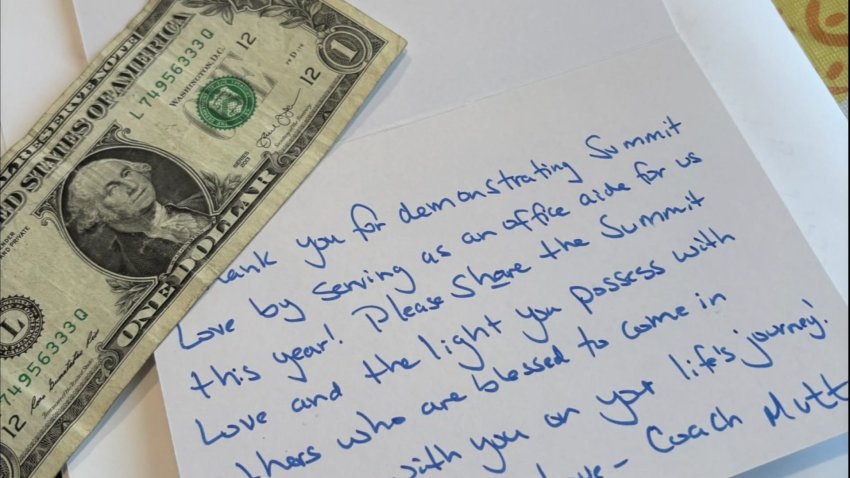 RESERVE NOTE
STATES OF AMERICA
L 74956333 Q
WASHINGTON, D.C.
12
ONE
1
12
SERIES
2013
ONE DOLLAR
L
74956333 Q
12
ank you for demonstrating Summit
Love by serving as an office aide for us
this year! Please Share the Summit
Love and the light you possess with
thers who are blessed to come in
with you on your life's journey!
- Coach Mutt